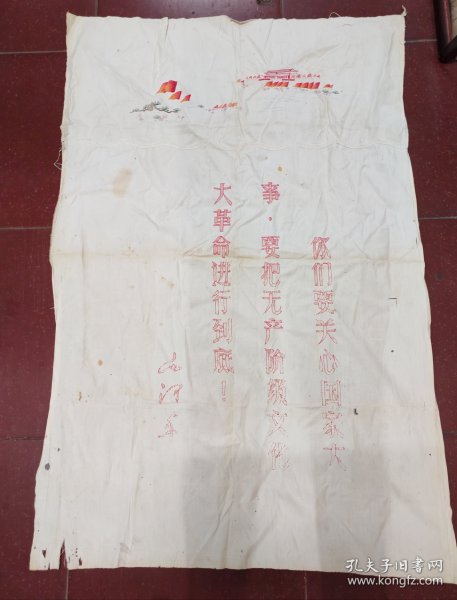 你们要关心国家大
事，要把无产阶级文化
大革命进行到底！
毛泽东
孔夫子旧书网
www.kongfz.com